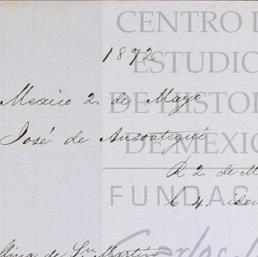 CENTRO D
ESTUDIO
DE HISTOR
DE MEXIC
FUNDAC
1872
Mexico 2 de Mayo
José de Ansoategui
R 2 de M
C 4.
Mina de Sn Martin
Carlos